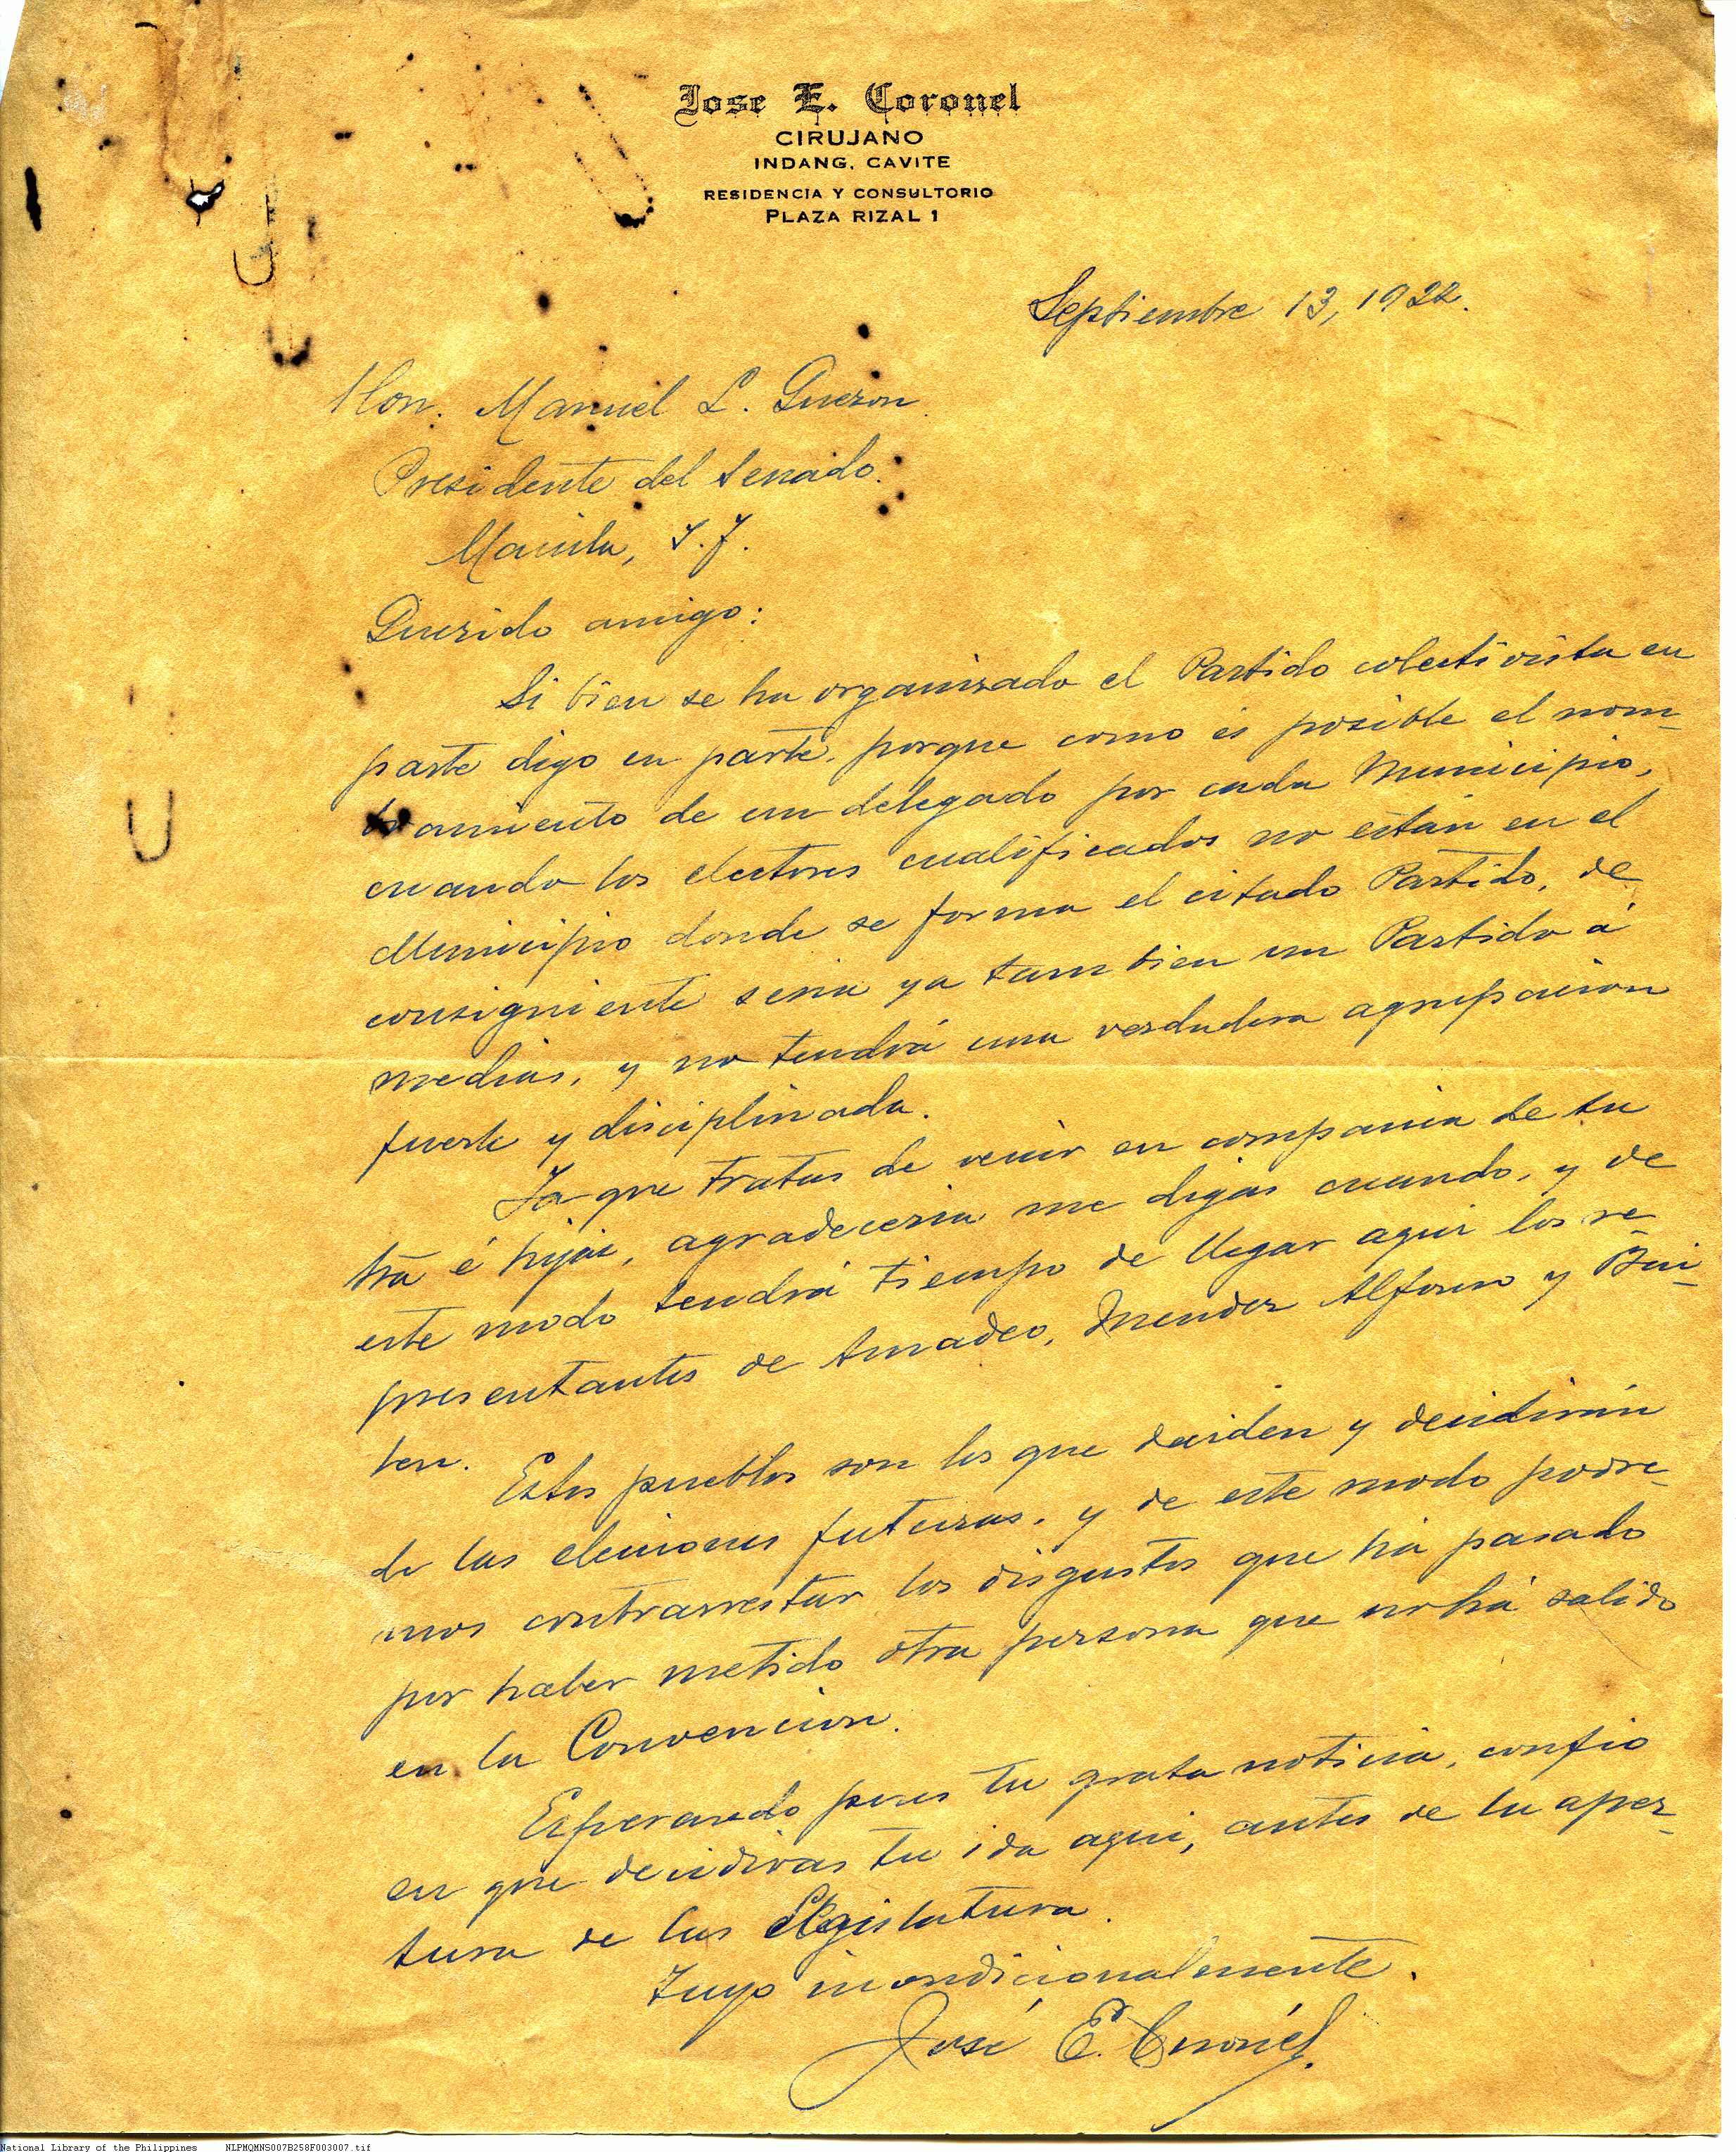 Jose E. Coronel
CIRUJANO
INDANG, CAVITE
RESIDENCIA Y CONSULTORIO
PLAZA RIZAL 1
Septiembre 13, 1922.
Hon. Manuel L. Quezon
Presidente del Senado.
Manila, I. F.
Querido amigo:
Si bien se ha organizado el Partido colectivista en
parte digo en parte, porque como es posible el nom-
bramiento de un delegado por cada Municipio,
cuando los electores cualificados no están en el
Municipio donde se forma el citado Partido, de
consiguiente seria ya tambien un Partido á
medias, y no tendrá una verdadera agrupacion
fuerte y disciplinada.
Ya que tratas de venir en compania de tu
tia é hija, agradeceria me digas cuando, y de
este modo tendrá tiempo de llegar aqui los re-
presentantes de Amadeo, Mendez Alfonso y Bai-
len.
Estos pueblos son los que deciden y decidirán
de las elecciones futuras, y de este modo podre-
mos contrarrestar los disgustos que há pasado
por haber metido otra persona que no há salido
en la Convencion.
Esperando pues tu grata noticia, confio
en que decidiras tu ida aqui, antes de la aper-
tura de las legislatura.
Tuyo incondicionalmente.
José E. Coronél.
National Library of the Philippines NLPMQMNS007B258F003007.tif